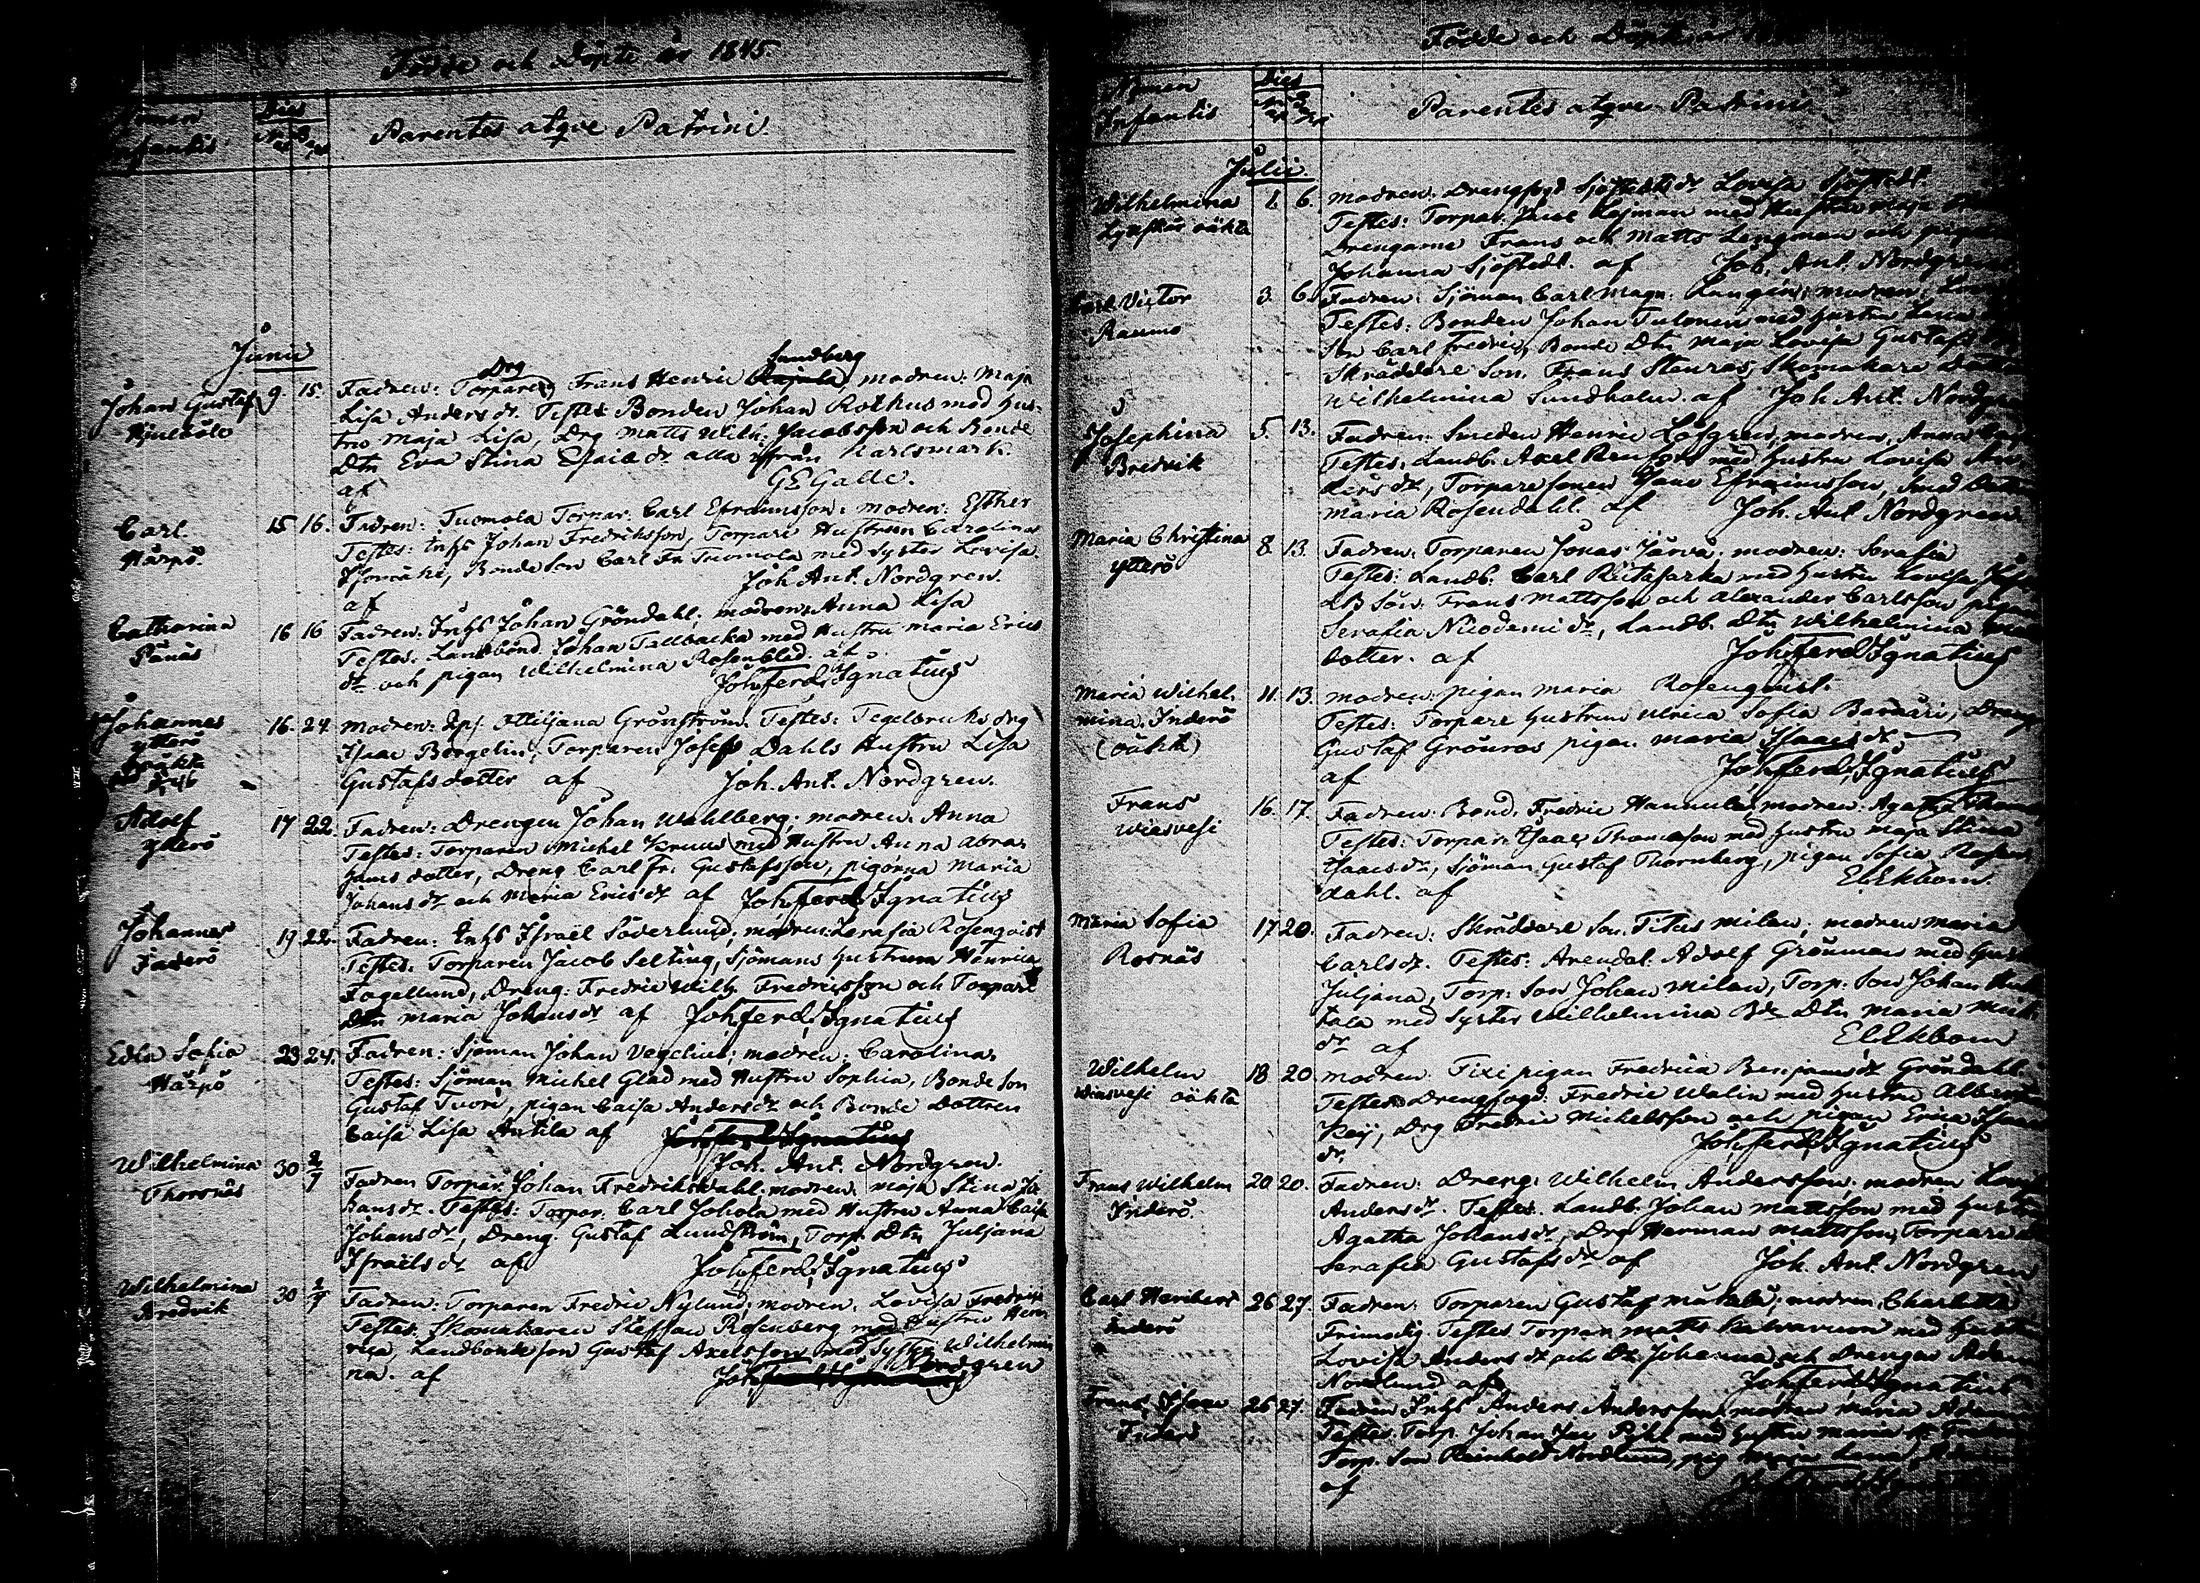 Födde och Döpte år 1845
Nomen Infantis
Dies
Parentes atqve Patrini
Junii
Johan Gustaf 9. 15.
Hjulböle
Fadren: Drg Frans Henric Sundberg, modren: Maja
Lisa Anders dr. Testes: Bonden Johan Rothus med Hus-
tru Maja Lisa, Drg Matts Wilh: Jacobsson och Bonde
Dtn Eva Stina Esaiæ dr alla ifrån Karlsmark.
af G E Galle.
Carl. 15 16.
Härpö.
Fadren: Tuomola Torpar. Carl Efraimsson: modren: Esther
Testes: Inhs Johan Fredriksson, Torpare Hustrun Carolina
Bonde Son Carl Fr Tuomola med Syster Lovisa
af Joh. Ant. Nordgren.
Catharina 16 16
Pänäs
Fadren: Inhs Johan Gröndahl; modren: Anna Lisa
Testes: Landbond. Johan Tallbacka med Hustru Maria Erics
dr och pigan Wilhelmina Rosenblad. af
Joh. Ferd. Ignatius
Johannes 16. 24.
ytterö
modren: Ottiljana Grönström. Testes: Tegelbruks drg
Isaac Bergelin, Torparen Josefs Dahls Hustru Lisa
Gustafsdotter af Joh. Ant. Nordgren.
Adolf 17 22.
ytterö
Fadren: Drengen Johan Wahlberg; modren: Anna
Testes: Torparen Michel Kruus med Hustru Anna Abra-
hams dotter, Dreng Carl Fr. Gustafsson, pigorna Maria
Johans dr och Maria Erics dr af Joh. Ferd. Ignatius
Johannes 19 22.
Inderö
Fadren: Inhs Israël Söderlund; modren: Serafia Rosenqvist
Testes: Torparen Jacob Selting, Sjömans Hustrun Henrica
Fagellund, Dreng: Fredric Wilh. Fredricsson och Torpare
Dtn Maria Johans dr af Joh. Ferd. Ignatius
Edla Sofia 23 24.
Härpö
Fadren: Sjöman Johan Vegelius; modren: Carolina
Testes: Sjöman Michel Glad med Hustru Sophia, Bonde Son
Gustaf Tuori, pigan Caisa Anders dr och Bonde Dottren
Caisa Lisa Antila af Joh. Ferd. Ignatius
Joh. Ant. Nordgren.
Wilhelmina 30 2/7
Thorsnäs
Fadren Torpar. Johan Fredrik Wahl; modren: Maja Stina Jo-
hans dr. Testes: Torpar. Carl Johola med Hustru Anna Caisa
Johans dr, Dreng. Gustaf Lundström, Torp. Dtn Juljana
Israëls dr af Joh. Ferd. Ignatius
Wilhelmina 30 2/7
Bredvik
Fadren: Torparen Fredric Nylund; modren: Lovisa
Testes: Skomakaren Steffan Rosenberg med Hustru Hen-
rica, Landbonde son Gustaf Axelsson med Syster Wilhelmi-
na. af Nordgren
Födde och Döpte år
Nomen Infantis
Dies
Parentes atqve Patrini
Julii.
Wilhelmina 1. 6.
oäkta
modren: Drengfogd Sjöstedts dr Lovisa Sjöstedt.
Testes: Torpar. Isac Lajman med Hustru Maja
Drengarne Frans och Matts Lengman och pigan
Johanna Sjöstedt. af Joh. Ant. Nordgren
Carl Victor 3. 6.
Raumo
Fadren: Sjöman Carl Magn. Langén; modren:
Testes: Bonden Johan Tulonen med Hustru Lena
Son Carl Fredric, Bonde Dtn Maja Lovisa Gustafs
Skräddare Son. Frans Stenroos, Skomakare
Wilhelmina Sundholm. af Joh. Ant. Nordgren
Josephina 5. 13.
Bredvik
Fadren: Smeden Henric Löfgren, modren: Anna
Testes: Landb. Axel med Hustru Lovisa An-
ders dr, Torpare sonen Isaac Efraimsson, Smed
Maria Rosendahl. af Joh. Ant. Nordgren
Maria Christina 8. 13.
ytterö
Fadren: Torparen Jonas Järvä; modren: Serafia
Testes: Landb. Carl Riitasarka med Hustru Lovisa
LB Son. Frans Mattsson och Alexander Carlsson pigan
Serafia Nicodemi dr, Landb. Dtn Wilhelmina
dotter. af Joh. Ferd. Ignatius
Maria Wilhel- 11. 13.
mina. Inderö
(oäkta)
modren: pigan Maria Rosenqvist.
Testes: Torpare Hustrun Ulrica Sofia Dreng
Gustaf Grönroos pigan Maria Isaacs dr
af Joh. Ferd. Ignatius
Frans 16. 17.
Wiasvesi
Fadren: Bond. Fredric Hannula; modren: Agatha
Testes: Torpar. Isaac Thomasson med Hustru Maja Stina
Isaacs dr, Sjöman Gustaf Thornberg, pigan Sofia Rosen-
dahl. af El Ekbom.
Maria Sofia 17 20.
Rosnäs
Fadren: Skräddare Son. Titus Milan; modren Maria
Carls dr. Testes: Arendat. Adolf Grönman med Hustru
Juljana, Torp: Son Johan Milan, Torp: Son Johan
med Syster Wilhelmina Dtn Maria Mich.
dr af El Ekbom
Wilhelm 18 20
Wiasvesi oäkta
modren: Tixi pigan Fredrica Benjamins dr Gröndahl
Testes: Drengfogd: Fredric Walin med Hustru
Drg Fredric Michelsson och pigan Erica
dr. Joh. Ferd. Ignatius
Frans Wilhelm 20 20.
Inderö
Fadren: Dreng: Wilhelm Andersson; modren
Anders dr. Testes: Landb. Johan Mattsson med Hustru
Agatha Johans dr, Drg Herman Mattsson, Torpare
Serafia Gustafs dr af Joh. Ant. Nordgren
Carl Heribert 26 27.
Inderö
Fadren: Torparen Gustaf modren Charlotta
Frimodig. Testes. Torpar. Matts med Hustru
Lovisa Anders dr och Johanna och Drengen Adam
Nordlund af Joh. Ferd. Ignatius
Frans Isaac 26 27.
Inderö
Fadren Inhs Anders Andersson; modren Maria
Testes: Torp. Johan med Hustru Maria
Torp. Son Reinhold Nordlund, pig
af